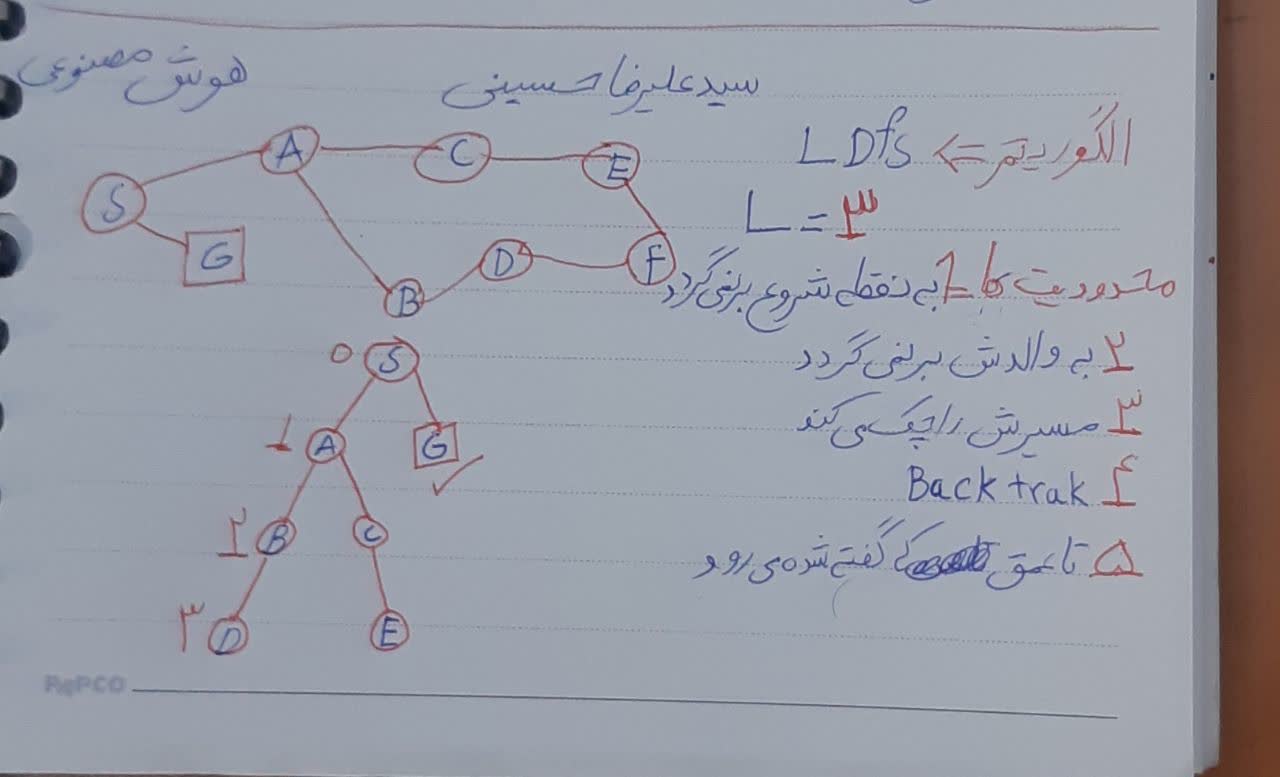 هوش مصنوعی
سید علیرضا حسینی
الگوریتم <= LDfs
L = ۳
A C E
S G
B D F
محدودیت ها = ۱ به نقطه شروع برنمی گردد
۲ به والدش برنمی گردد
۳ مسیرش را چک می کند
۴ Back trak
۵ تا عمق گفته شده می رود
۰ S
۱ A G ✓
۲ B C
۳ D E
PAPCO